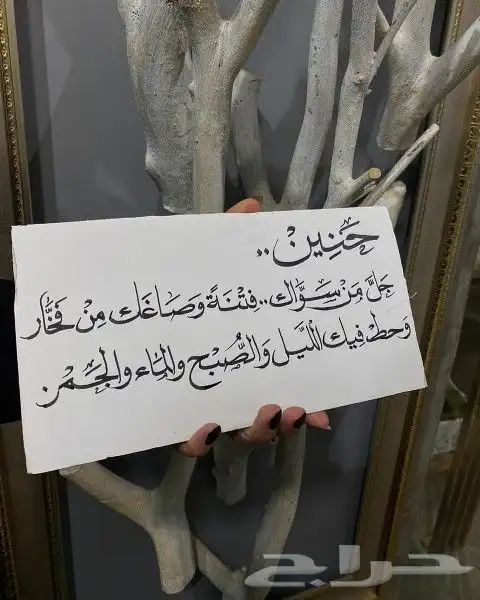 حَنِينْ ..
جَلَّ مَنْ سَوَّاك .. فِتْنَةً وَصَاغَك مِنْ فَخَّار
وَحط فِيك اللَّيل وَالصُّبح والمَاء والجَمْر
حراج